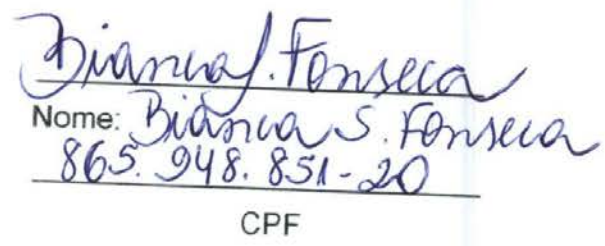 Bianca S. Fonseca
Nome: Bianca S. Fonseca
865.948.851-20
CPF